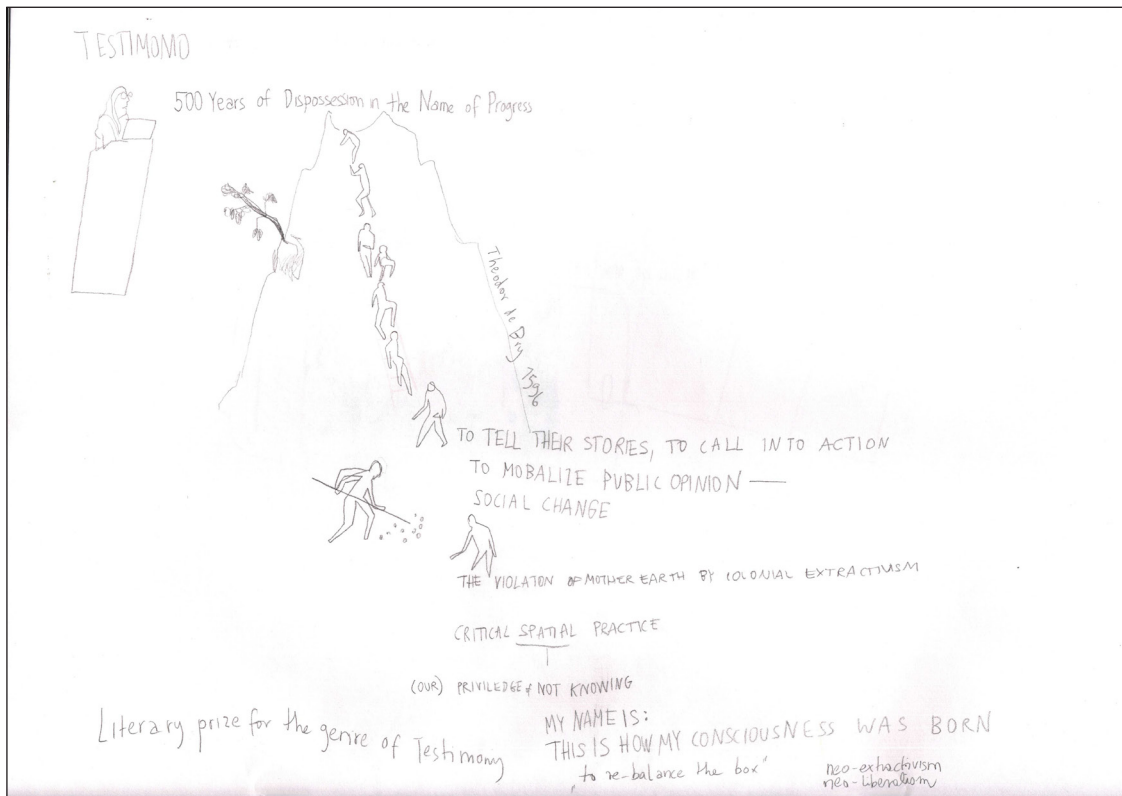 TESTIMONO
500 Years of Dispossession in the Name of Progress
Theodor de Bry 1596
TO TELL THEIR STORIES, TO CALL INTO ACTION
TO MOBALIZE PUBLIC OPINION —
SOCIAL CHANGE
THE VIOLATION OF MOTHER EARTH BY COLONIAL EXTRACTIVISM
CRITICAL SPATIAL PRACTICE
(OUR) PRIVILEDGE of NOT KNOWING
Literary prize for the genre of Testimony
MY NAME IS:
THIS IS HOW MY CONSCIOUSNESS WAS BORN
„to re-balance the box"
neo-extractivism
neo-liberalism